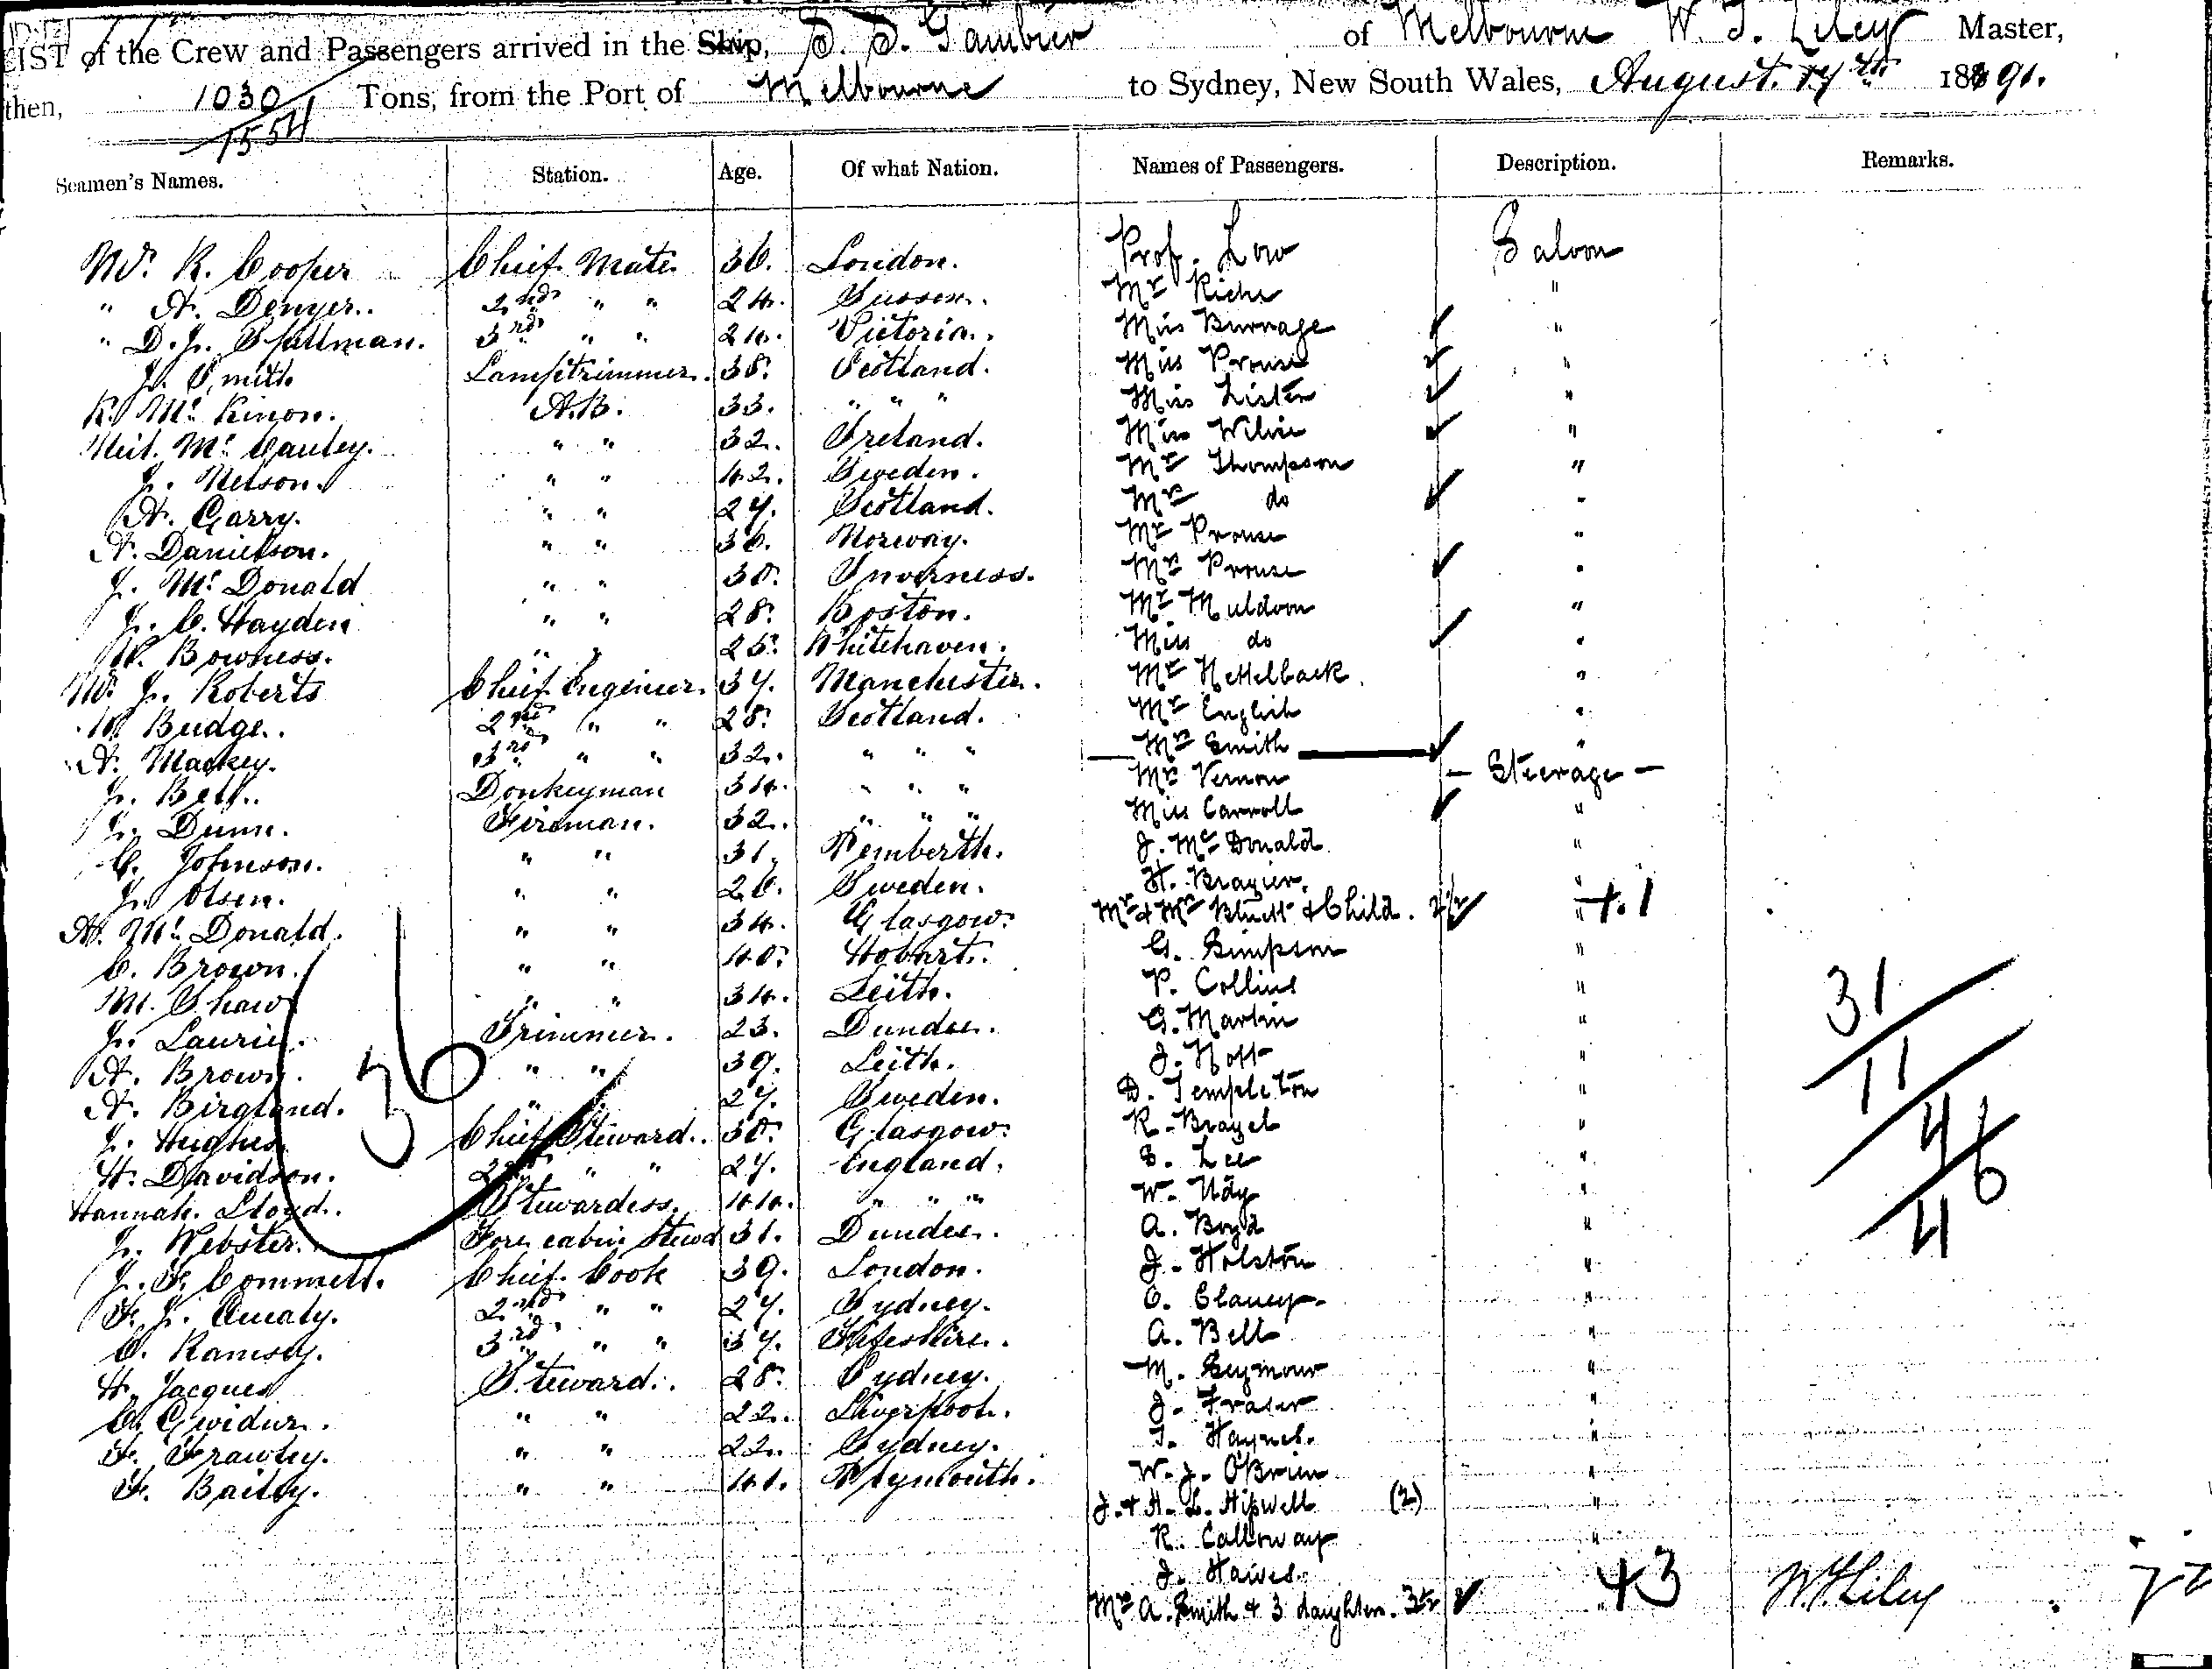 LIST of the Crew and Passengers arrived in the Ship, S. S. Gambier of Melbourne W. J. Liley Master,
then, 1030 Tons, from the Port of Melbourne to Sydney, New South Wales, August 17th 1891.
1554
Seamen's Names. Station. Age. Of what Nation. Names of Passengers. Description. Remarks.
Mr. R. Cooper Chief Mate 36. London. Prof. Low Saloon
" A. Denyer. 2nd " " 24. Sussex. Mr Riche "
" D. J. Spillman. 3rd " " 24. Victoria. Miss Burnage "
J. Smith Lamptrimmer. 38. Scotland. Miss Prouse "
R. Mc Kinon. A.B. 33. " " " Miss Lister "
Neil. Mc Cauley. " " 32. Ireland. Miss Wilvie "
J. Nelson. " " 42. Sweden. Mr Thompson "
A. Garry. " " 27. Scotland. Mrs do "
A. Danielson. " " 36. Norway. Mr Prouse "
J. Mc Donald " " 30. Inverness. Mrs Prouse "
J. C. Hayden " " 28. Boston. Mr Muldoon "
W. Bowness. " " 25. Whitehaven. Miss do "
Mr. J. Roberts Chief Engineer. 37. Manchester. Mr Nettelback "
W Budge. 2nd " " 28. Scotland. Mr English "
A. Mackey. 3rd " " 32. " " " Mrs Smith "
J. Bell. Donkeyman 34. " " " Mrs Vernon - Steerage -
J. Dunn. Fireman. 32. " " " Miss Carroll "
C. Johnson. " " 31. Pemberth. J. Mc Donald "
J. Olsen. " " 26. Sweden. H. Brazier. "
A. Mc Donald. " " 34. Glasgow. Mr & Mrs Bluett & Child. " + 1
C. Brown. " " 40. Hobart. G. Simpson "
M. Shaw " " 34. Leith. P. Collins " 31
J. Laurie. Trimmer. 23. Dundee. G. Martin " 11
A. Brown. " " 39. Leith. J. Hoff "
A. Birgland. " " 27. Sweden. D. Templeton " 4
36
J. Hughes Chief Steward. 30. Glasgow. R. Brazel " 46
H. Davidson. 2nd " " 27. England. S. Lee "
Hannah. Lloyd. Stewardess. 44. " " " W. Udy "
J. Webster. Fore cabin Stewd 31. Dundee. A. Boyd "
J. F. Commett. Chief Cook 39. London. J. Holston "
F. J. Quealy. 2nd " " 27. Sydney. C. Clancy "
C. Ramsey. 3rd " " 37. Fifeshire. A. Bell "
H. Jacques Steward. 28. Sydney. M. Seymour "
C. Gwidur. " " 22. Liverpool. J. Fraser "
F. Frawley. " " 22. Sydney. T. Haynes. "
F. Bailey. " " 41. Plymouth. W. J. O'Brien "
J. & H. L. Hipwell (2) "
R. Calloway "
J. Hawes.
Mrs A. Smith & 3 daughters. 43 W J Liley